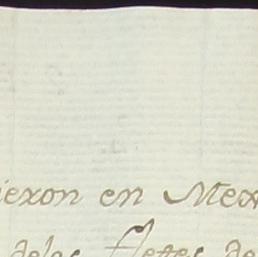 iexon en Mex
delos fletes de